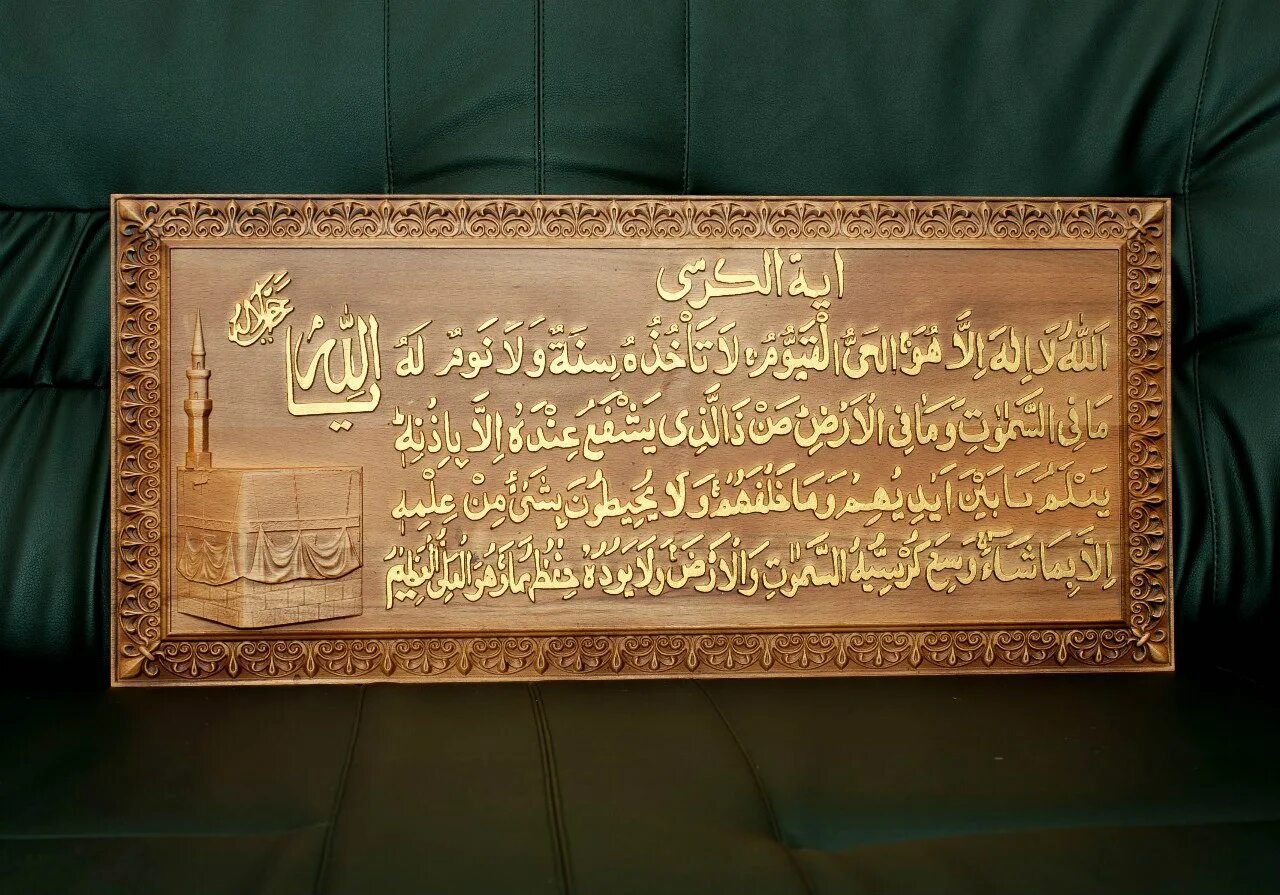 اية الكرسى
اَللّٰهُ لَا اِلٰهَ اِلَّا هُوَ الْحَىُّ الْقَيُّومُ لَا تَاْخُذُهُ سِنَةٌ وَلَا نَوْمٌ لَهُ
مَا فِى السَّمٰوٰتِ وَمَا فِى الْاَرْضِ مَنْ ذَا الَّذِى يَشْفَعُ عِنْدَهُ اِلَّا بِاِذْنِهٖ
يَعْلَمُ مَا بَيْنَ اَيْدِيهِمْ وَمَا خَلْفَهُمْ وَلَا يُحِيطُونَ بِشَىْءٍ مِنْ عِلْمِهٖ
اِلَّا بِمَا شَاءَ وَسِعَ كُرْسِيُّهُ السَّمٰوٰتِ وَالْاَرْضَ وَلَا يَؤُدُهُ حِفْظُهُمَا وَهُوَ الْعَلِىُّ الْعَظِيمُ
يا اللّٰه
جل جلاله